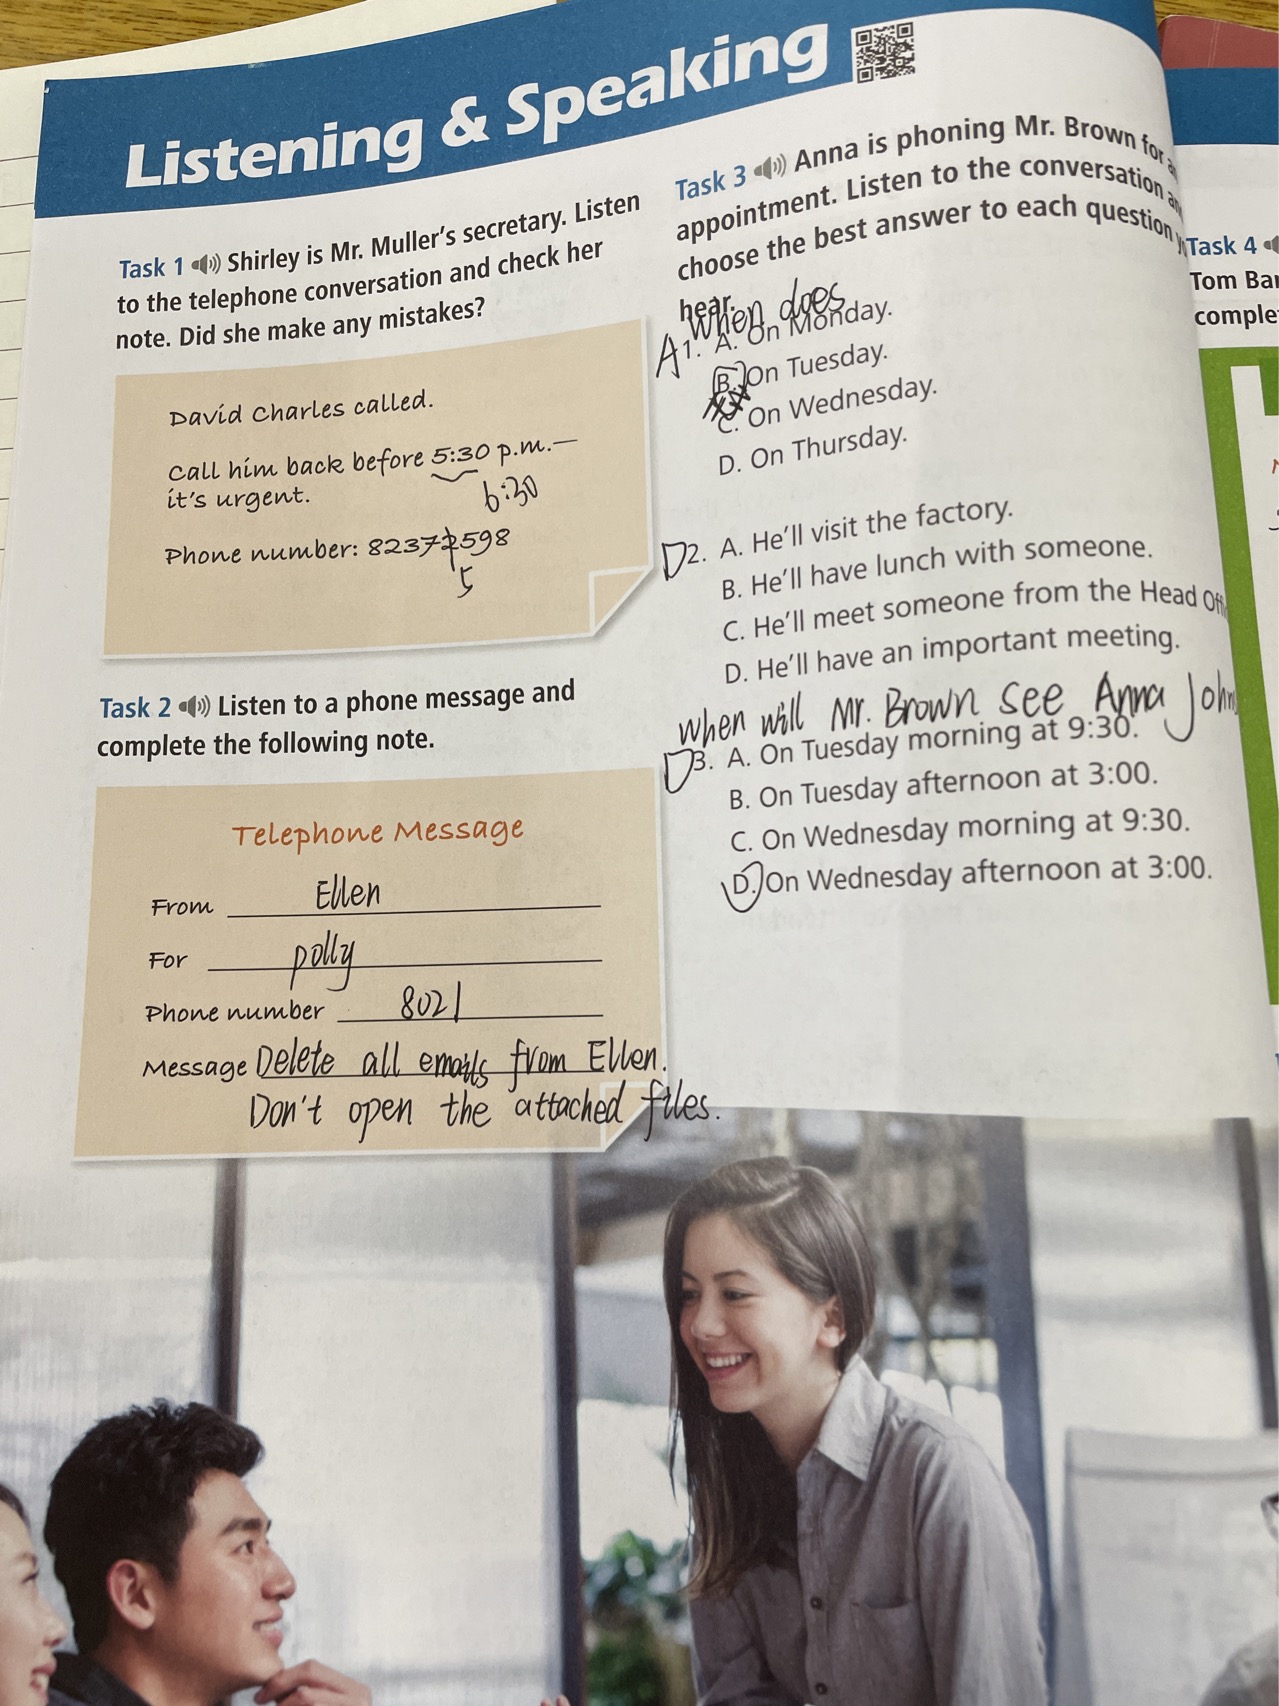 Listening & Speaking
Task 1 Shirley is Mr. Muller's secretary. Listen
to the telephone conversation and check her
note. Did she make any mistakes?
David Charles called.
Call him back before 5:30 p.m.—
6:30
it's urgent.
Phone number: 82372598
5
Task 2 Listen to a phone message and
complete the following note.
Telephone Message
From Ellen
For polly
Phone number 8021
Message Delete all emails from Ellen.
Don't open the attached files.
Task 3 Anna is phoning Mr. Brown for
appointment. Listen to the conversation
choose the best answer to each question
hear.
When does
A 1. A. On Monday.
B. On Tuesday.
C. On Wednesday.
D. On Thursday.
D 2. A. He'll visit the factory.
B. He'll have lunch with someone.
C. He'll meet someone from the Head
D. He'll have an important meeting.
when will Mr. Brown see Anna
D 3. A. On Tuesday morning at 9:30.
B. On Tuesday afternoon at 3:00.
C. On Wednesday morning at 9:30.
D. On Wednesday afternoon at 3:00.
Task 4
Tom